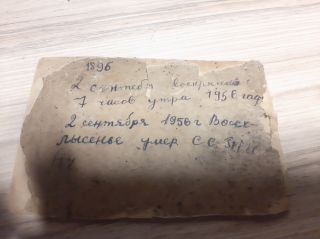 1896
2 сентебя воскрисние
7 часов утра 1956 года
2 сентября 1956 г Воск
лысенье умер С. С.